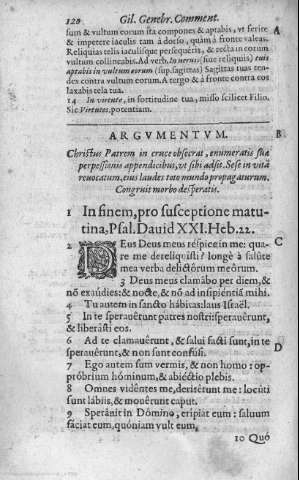 120 Gil. Genebr. Comment.
sum & vultum eorum ita compones & aptabis, ut ferire A
& impetere iaculis tam à dorso, quàm à fronte valeas.
Reliquias telis iaculisque persequeris, & recta in eorum
vultum collineabis. Ad verb. In neruis (siue reliquiis) tuis
aptabis in vultum eorum (sup. sagittas) Sagittas tuas ten-
dex contra vultum eorum. A tergo & à fronte contra eos
laxabis tela tua.
14 In virtute, in fortitudine tua, misso scilicet Filio.
Sic Virtutes. potentiam.
ARGVMENTVM. B
Christus Patrem in cruce obsecrat, enumeratis suæ
perpessionis appendicibus, vt sibi adsit. Sese in vitã
reuocatum, eius laudes toto mundo propagaturum.
Congruit morbo desperatis.
1 In finem, pro susceptione matu-
tina, Psal. Dauid XXI. Heb. 22.
2 DEus Deus meus réspice in me: qua- C
re me dereliquísti? longè à salúte
mea verba delictórum meórum.
3 Deus meus clamábo per diem, &
nõ exáudies: & nocte, & nõ ad insipiéntiã mihi.
4 Tu autem in sancto hábitas: laus Israël.
5 In te sperauérunt patres nostri: sperauérunt,
& liberásti eos.
6 Ad te clamauérunt, & salui facti sunt, in te D
sperauérunt, & non sunt confúsi.
7 Ego autem sum vermis, & non homo: op-
próbrium hóminum, & abiéctio plebis.
8 Omnes vidéntes me, derisérunt me: locúti
sunt lábiis, & mouérunt caput.
9 Speráuit in Dómino, erípiat eum: saluum
fáciat eum, quóniam vult eum,
10 Quó